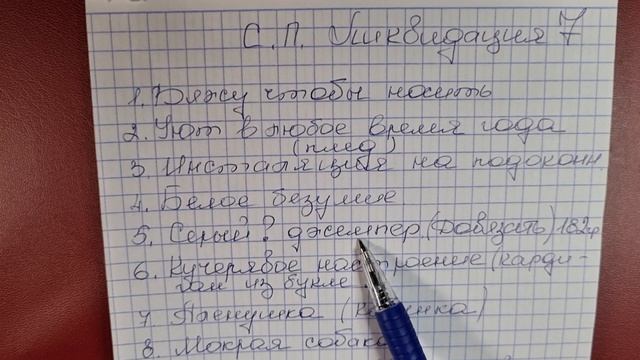 С.П. Ликвидация 7
1. Вяжу чтобы носить
2. Уют в любое время года
(плед)
3. Инсталяция на подоконн.
4. Белое безумие
5. Серый? джемпер (довязать) 182гр
6. Кучерявое настроение (карди-
ган из букле
7. Паенушка (
8. Мокрая собака